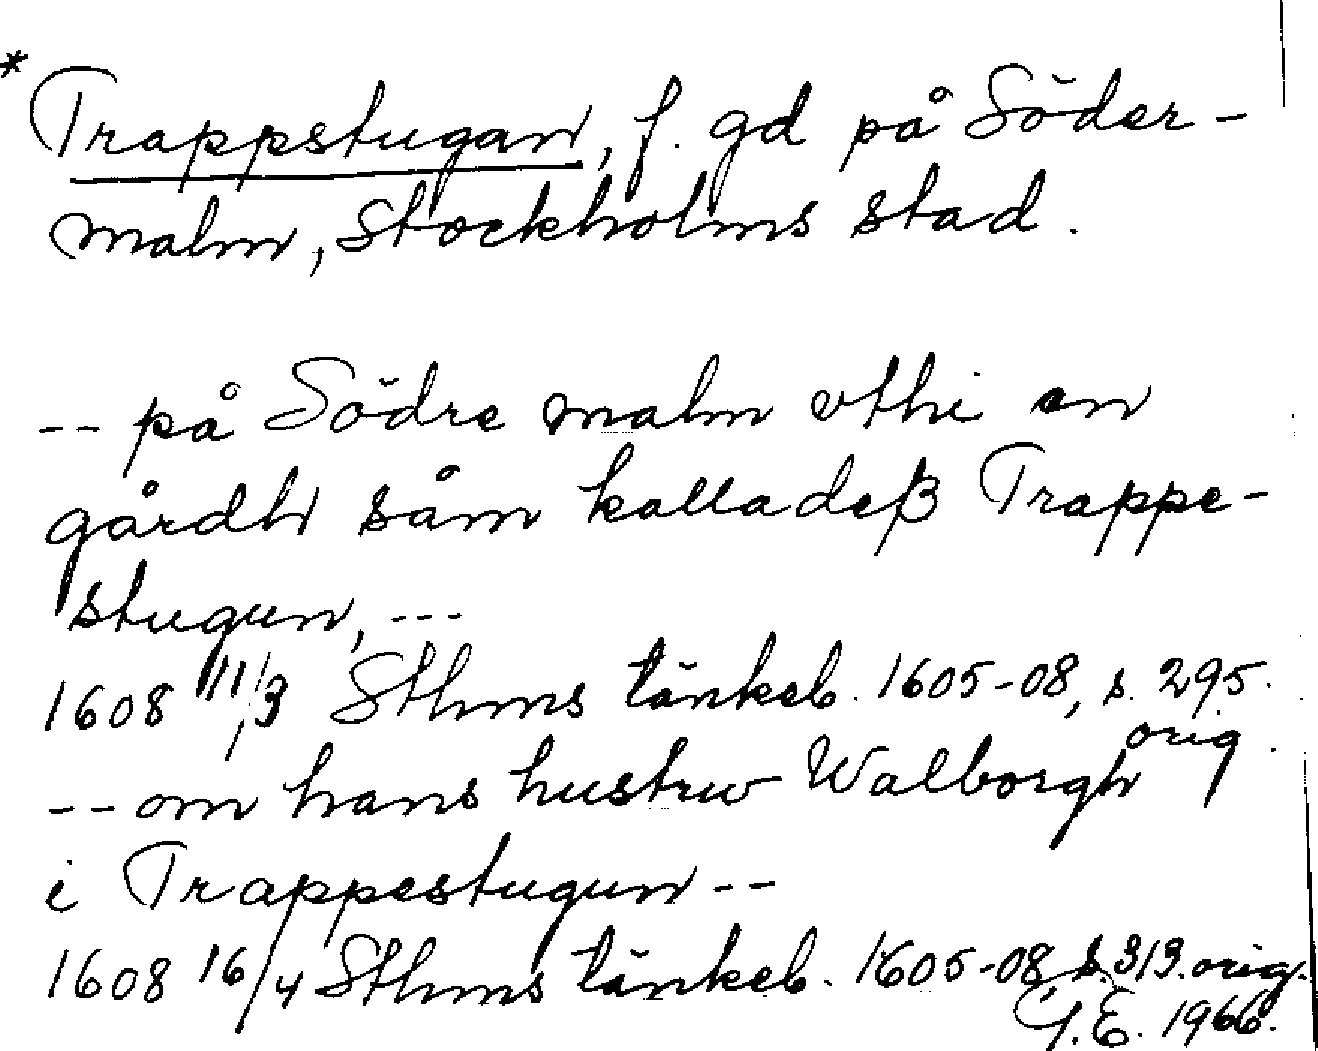 * Trappstugan, f. gd på Söder-
malm, Stockholms stad.
-- på Södre malm vthi en
gårdh såm kalladeß Trappe-
stugun, ---
1608 11/3 Sthms tänkeb. 1605-08, s. 295.
orig.
-- om hans hustrw Walborgh
i Trappestugun --
1608 16/4 Sthms tänkeb. 1605-08, s. 313. orig.
G.E. 1966.